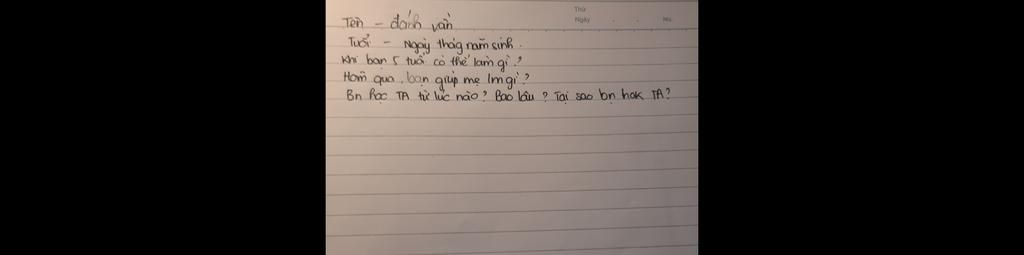 Thứ
Ngày . . No.
Tên - đánh vần
Tuổi - Ngày thág năm sinh.
Khi bạn 5 tuổi có thể làm gì?
Hôm qua, bạn giúp mẹ lm gì?
Bn học TA từ lúc nào? Bao lâu? Tại sao bn hok TA?